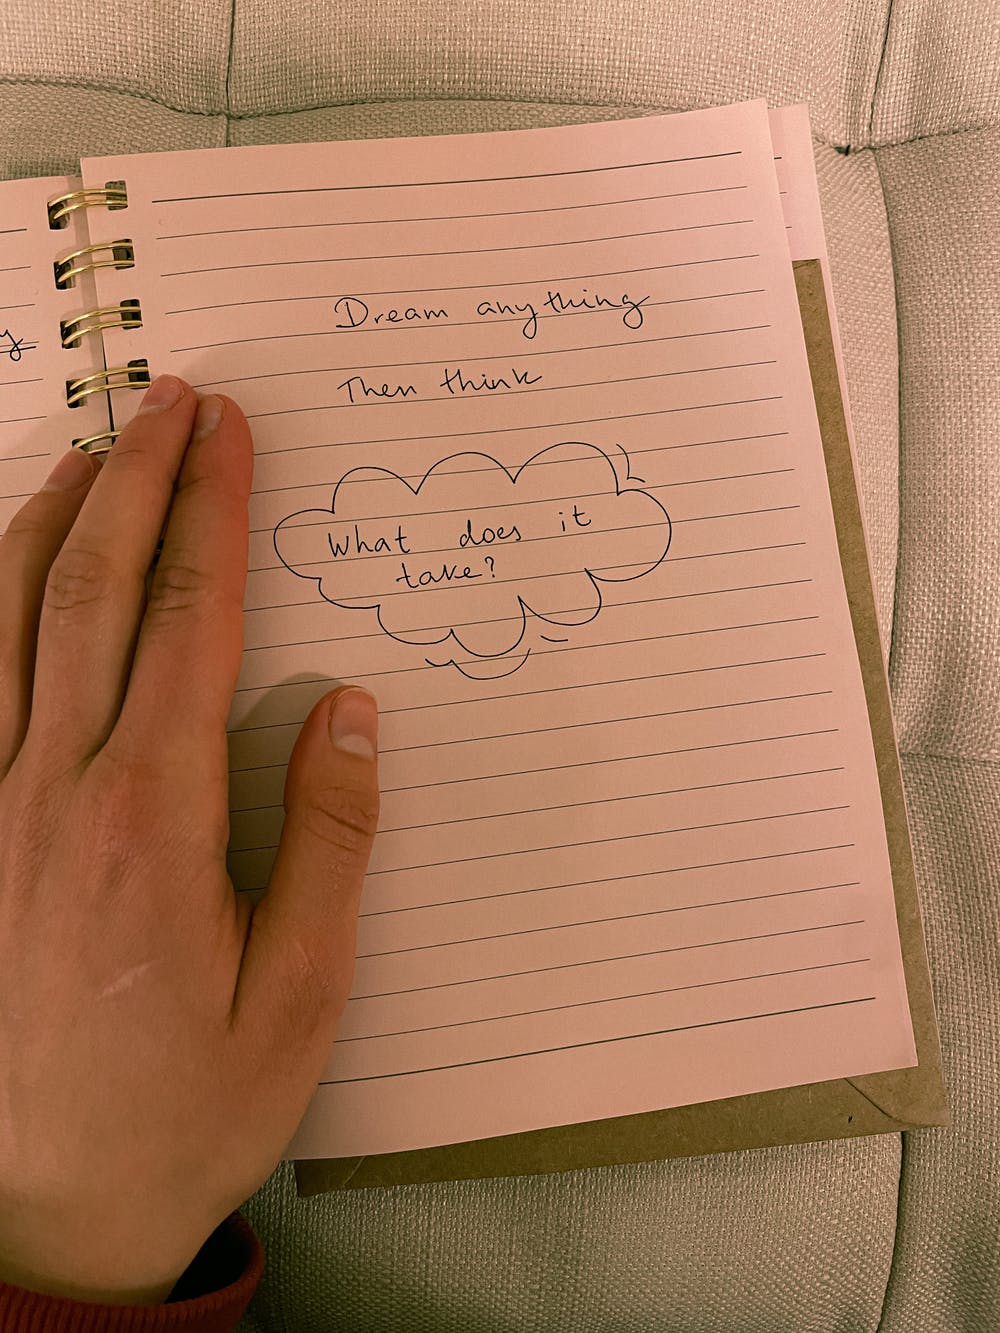 Dream anything
Then think
What does it
take?